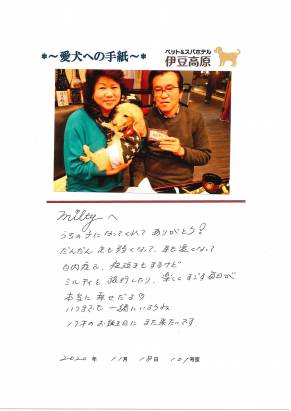 *～愛犬への手紙～*
ペット&スパホテル
伊豆高原
Milty へ
うちの子になってくれて ありがとう?
だんだん 足も弱くなって、耳も遠くなって
白内症で、粗相もするけど
ミルティと 旅行したり、楽しくすごす毎日が
本当に 幸せだよ
いつまでも 一緒にいようね
17才のお誕生日に また来たいです.
2020 年 11月 18日 101号室